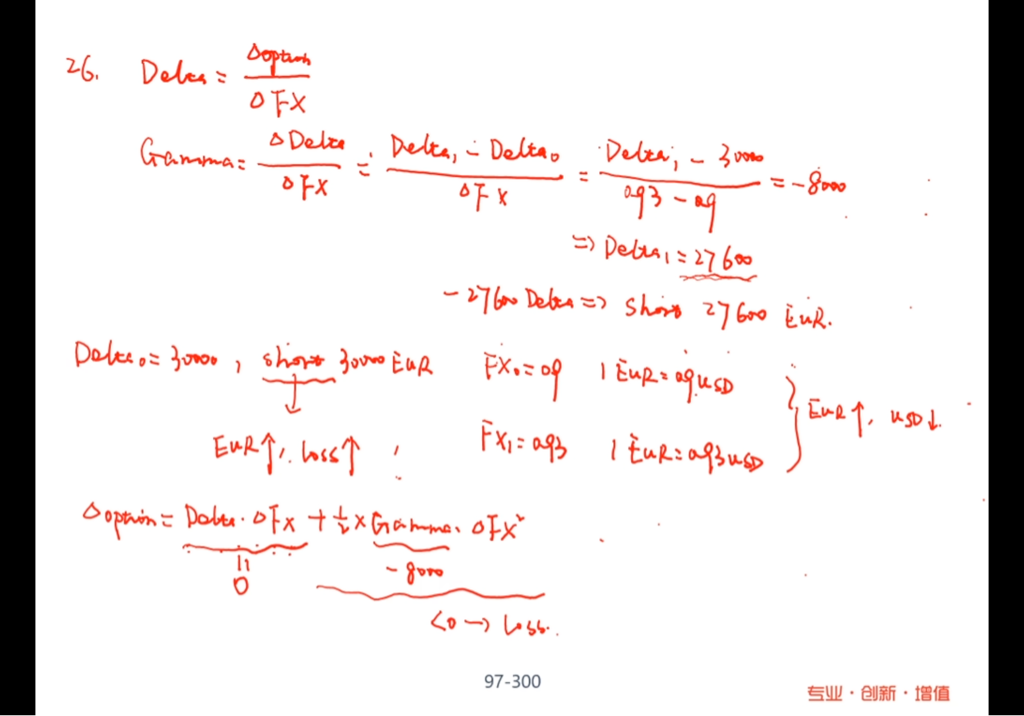 26. Delta = Δoption / ΔFX
Gamma = ΔDelta / ΔFX = Delta₁ - Delta₀ / ΔFX = Delta₁ - 30000 / 0.93 - 0.9 = -8000
=> Delta₁ = 27600
-27600 Delta => short 27600 EUR.
Delta₀ = 30000, short 30000 EUR FX₀ = 0.9 1 EUR = 0.9 USD
EUR↑, USD↓.
EUR↑, loss↑, FX₁ = 0.93 1 EUR = 0.93 USD
Δoption = Delta · ΔFX + ½ × Gamma · ΔFX²
0
-8000
<0 → loss.
97-300
专业·创新·增值